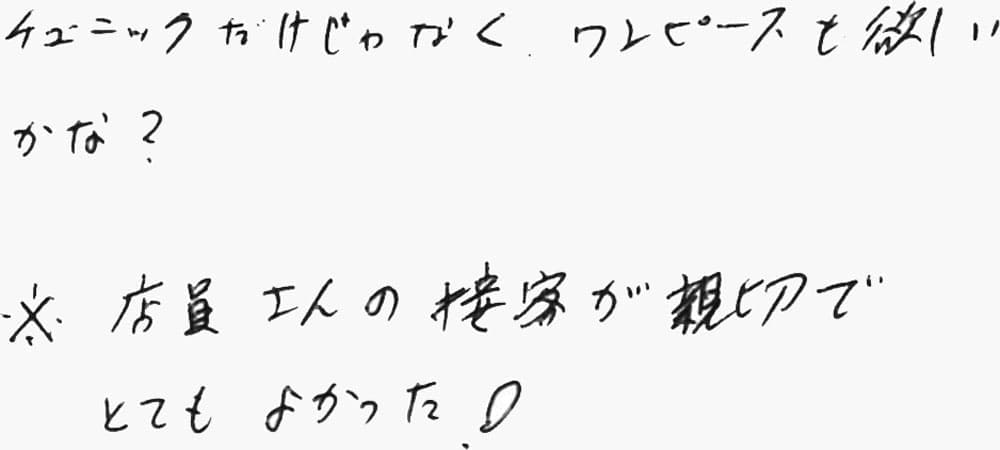 チュニックだけじゃなく、ワンピースも欲しい
かな？
※ 店員さんの接客が親切で
とてもよかった！